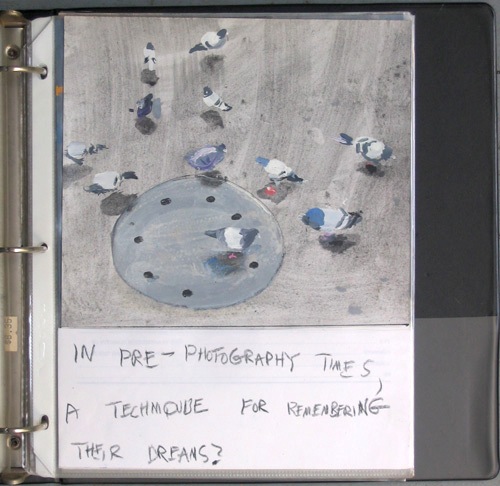 IN PRE-PHOTOGRAPHY TIMES,
A TECHNIQUBE FOR REMENBERING
THEIR DREANS?